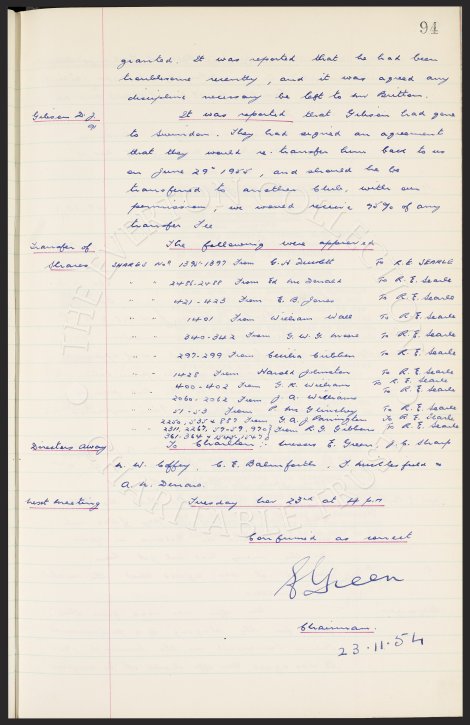 94
granted. It was reported that he had been
troublesome recently, and it was agreed any
discipline necessary be left to Mr Britton.
Gibson D. J. It was reported that Gibson had gone
to Swindon. They had signed an agreement
that they would re-transfer him back to us
on June 29th 1955, and should he be
transferred to another Club, with our
permission, we would receive 75% of any
transfer Fee
Transfer of The following were approved
Shares SHARES Nos 1395-1397 From C. H. To R. E. SEARLE
" " 2486-2488 From Ed McDonald To R. E. Searle
" " 421-423 From E. B. Jones To R. E. Searle
" " 1401 From William Wall To R. E. Searle
" " 340-342 From G. W. G. To R. E. Searle
" " 297-299 From Cecilia To R. E. Searle
" " 1428 From Harold Johnston To R. E. Searle
400-402 From G. R. Williams To R. E. Searle
2060-2062 From J. A. Williams
51-53 From P. McGlinchey To R. E. Searle
2250, 535 & 887 From G. A. J. To R. E. Searle
2311, 2267, 57-59, 970 From R. G. Gibbons To R. E. Searle
361-364 & 1545-1547
Directors Away To Charlton :- Messrs E. Green, J. C. Sharp
N. W. Coffey, C. E. Balmforth, F. Micklesfield &
A. N. Denaro.
Next Meeting Tuesday Nov 23rd at 4 p.m
Confirmed as correct
E Green
Chairman.
23.11.54
© THE EVERTON COLLECTION CHARITABLE TRUST